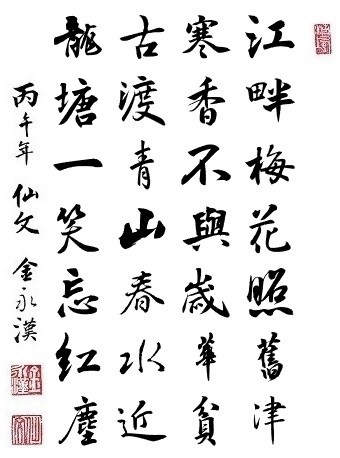 江畔梅花照舊津
寒香不與歲華貧
古渡青山春水近
龍塘一笑忘紅塵
丙午年 仙文 金永漢